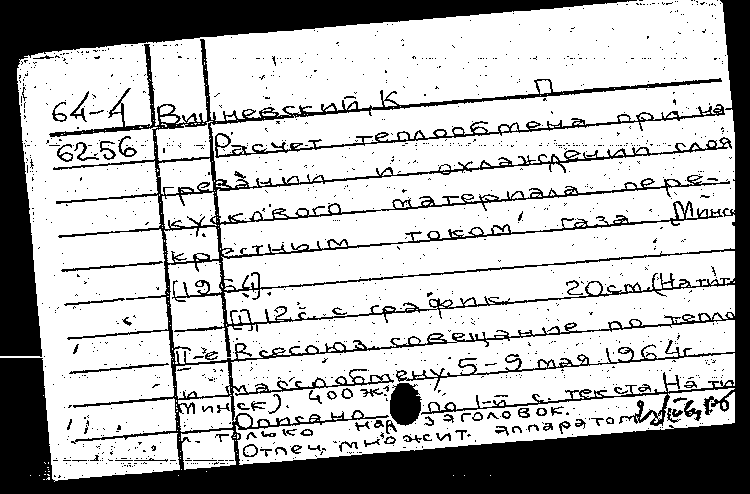 64-4 Вишневский, К П
6256 Расчет теплообмена при на-
гревании и охлаждении слоя
кускового материала пере-
крестным током газа [Минск
[1964].
[1], 12 с. с график. 20 см. (На тит.
II-е Всесоюз. совещание по тепло
и массообмену. 5-9 мая 1964г.
Минск). 400 экз.
Описано по 1-й с. текста. На тит.
л. только над заголовок.
Отпеч. множит. аппаратом